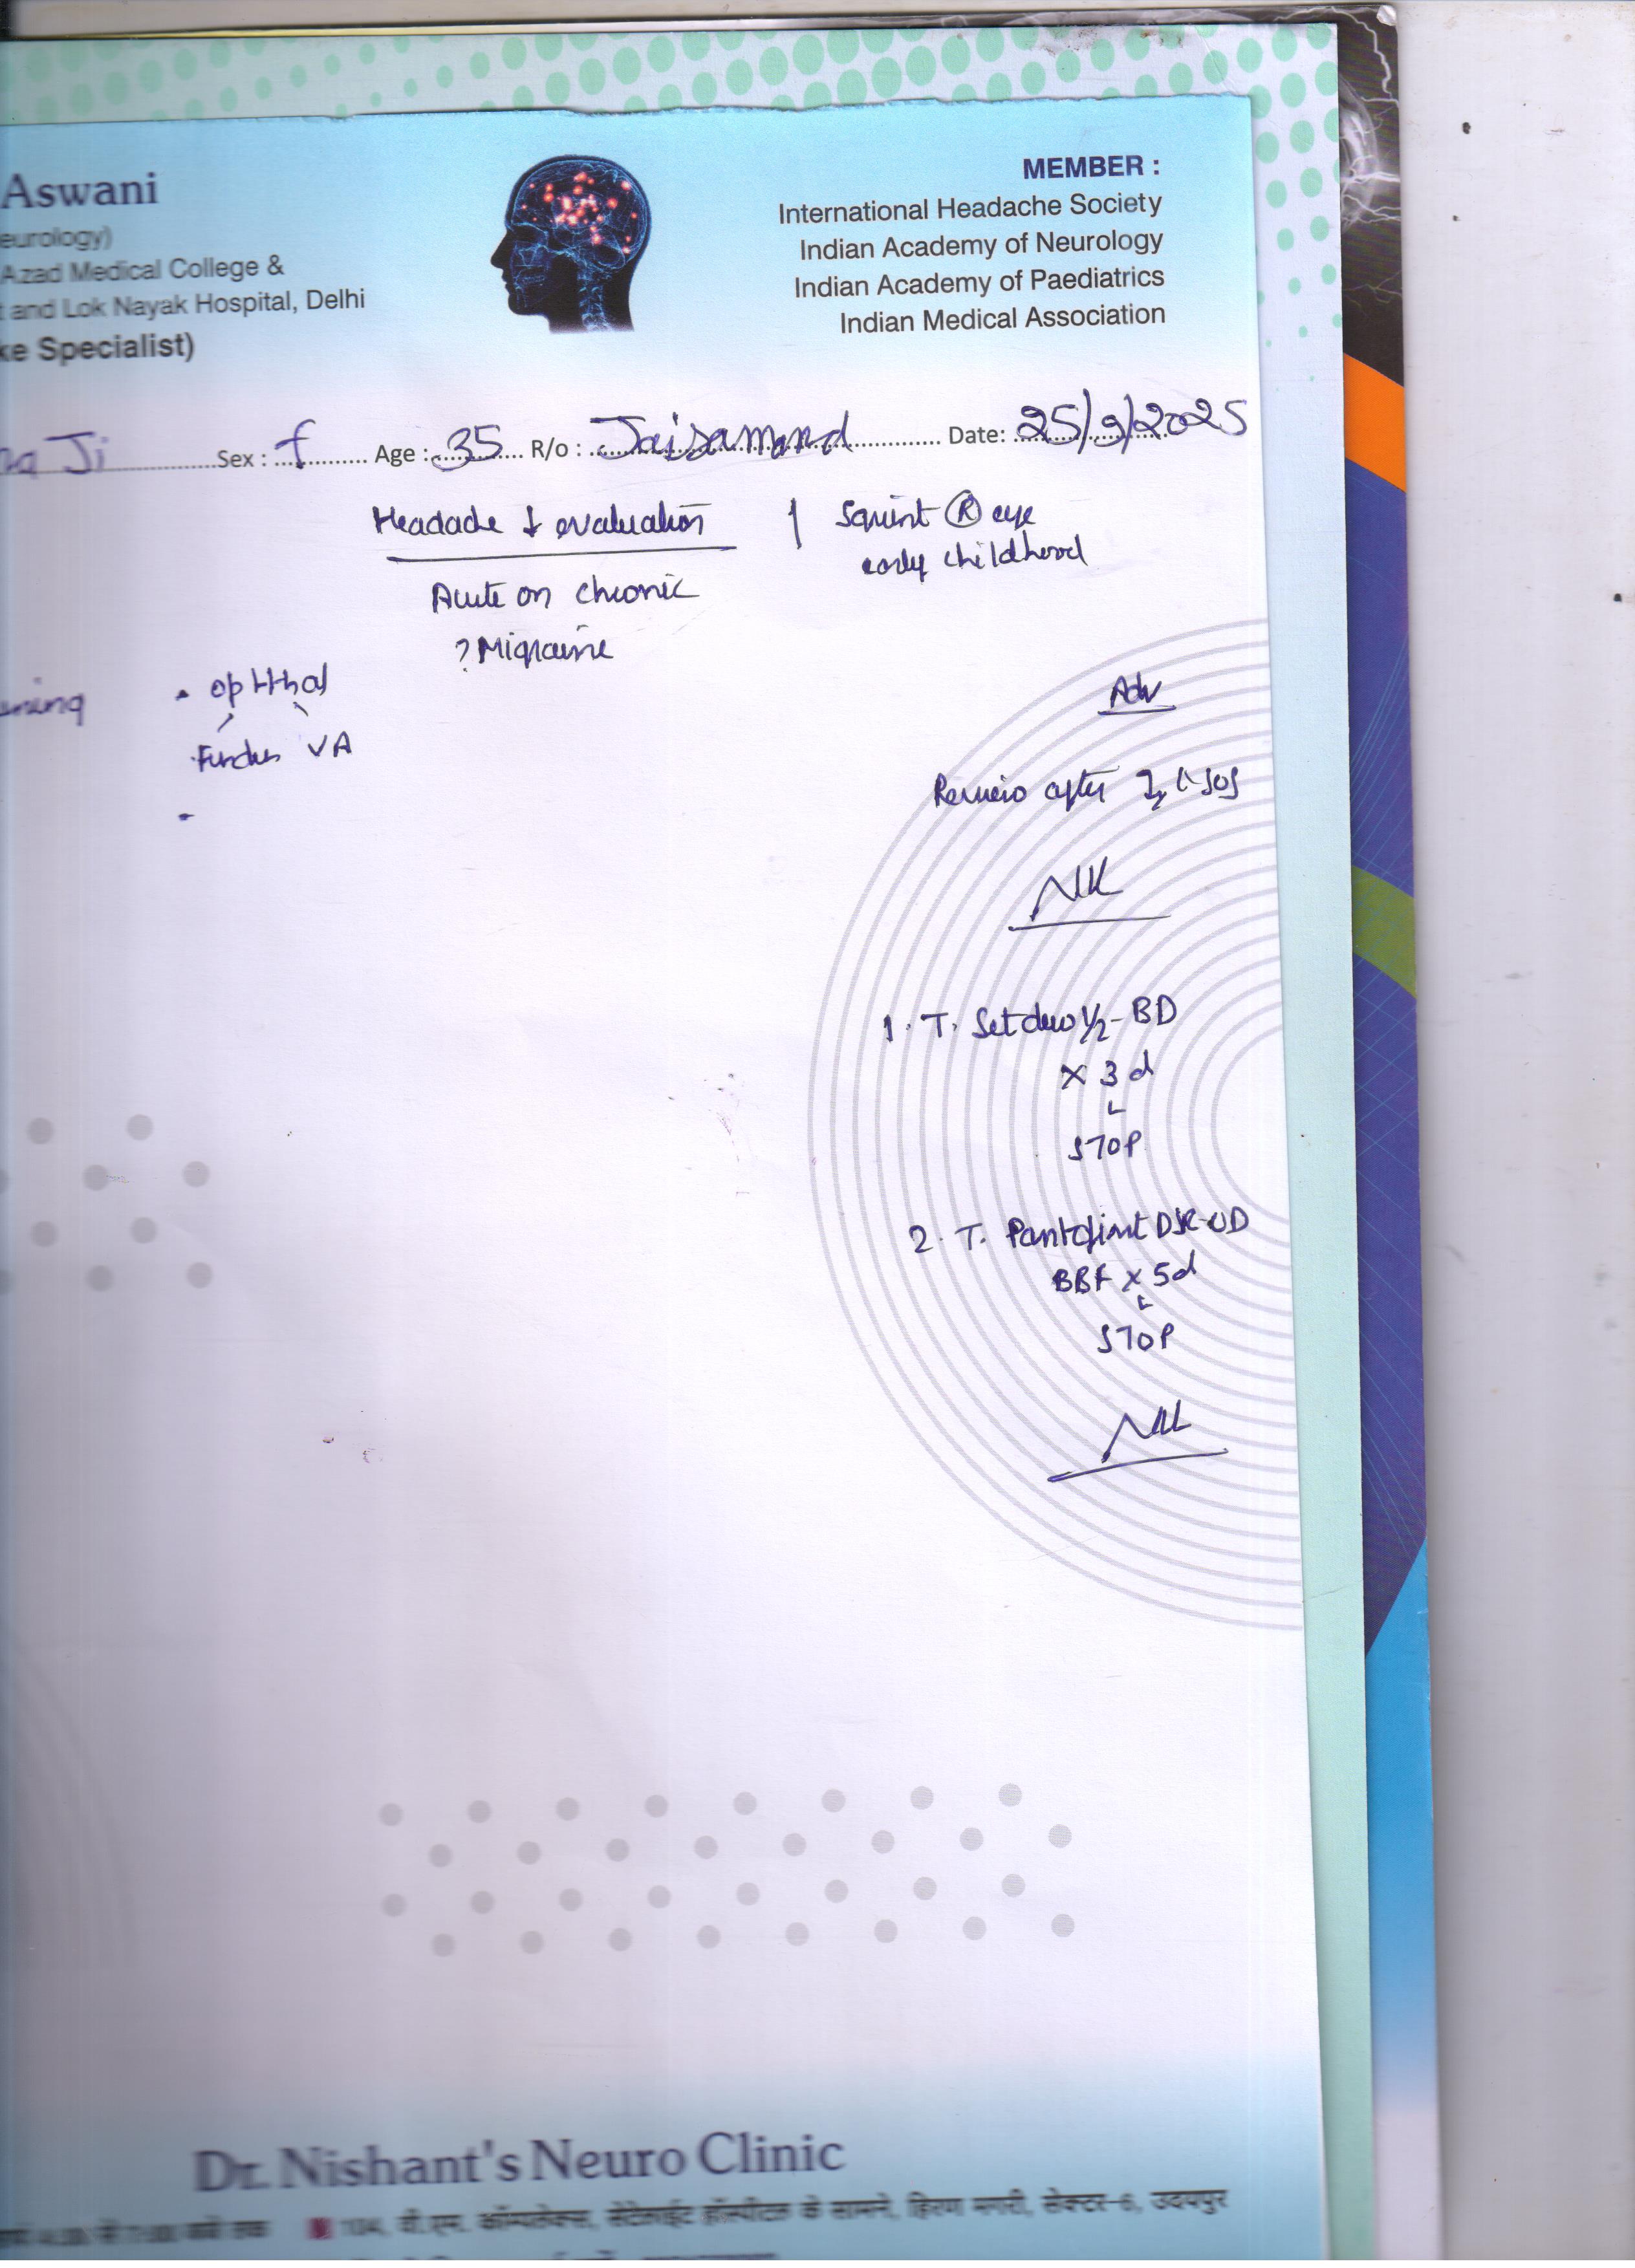 Aswani
eurology)
Azad Medical College &
and Lok Nayak Hospital, Delhi
ke Specialist)
MEMBER :
International Headache Society
Indian Academy of Neurology
Indian Academy of Paediatrics
Indian Medical Association
Ji Sex : f Age : 35 R/o : Jaisamand Date: 25/9/2025
Headache evaluation
Squint Ⓡ eye
early childhood
Acute on chronic
? Migraine
• Ophthal
Fundus VA
Adv
Review after SOS
1. T. 1/2 - BD
x 3 d
STOP
2. T. DSR-OD
BBF x 5d
STOP
Dr. Nishant's Neuro Clinic
104, वी.एम. कॉम्पलेक्स, सेटेलाईट हॉस्पीटल के सामने, हिरण मगरी, सेक्टर-6, उदयपुर